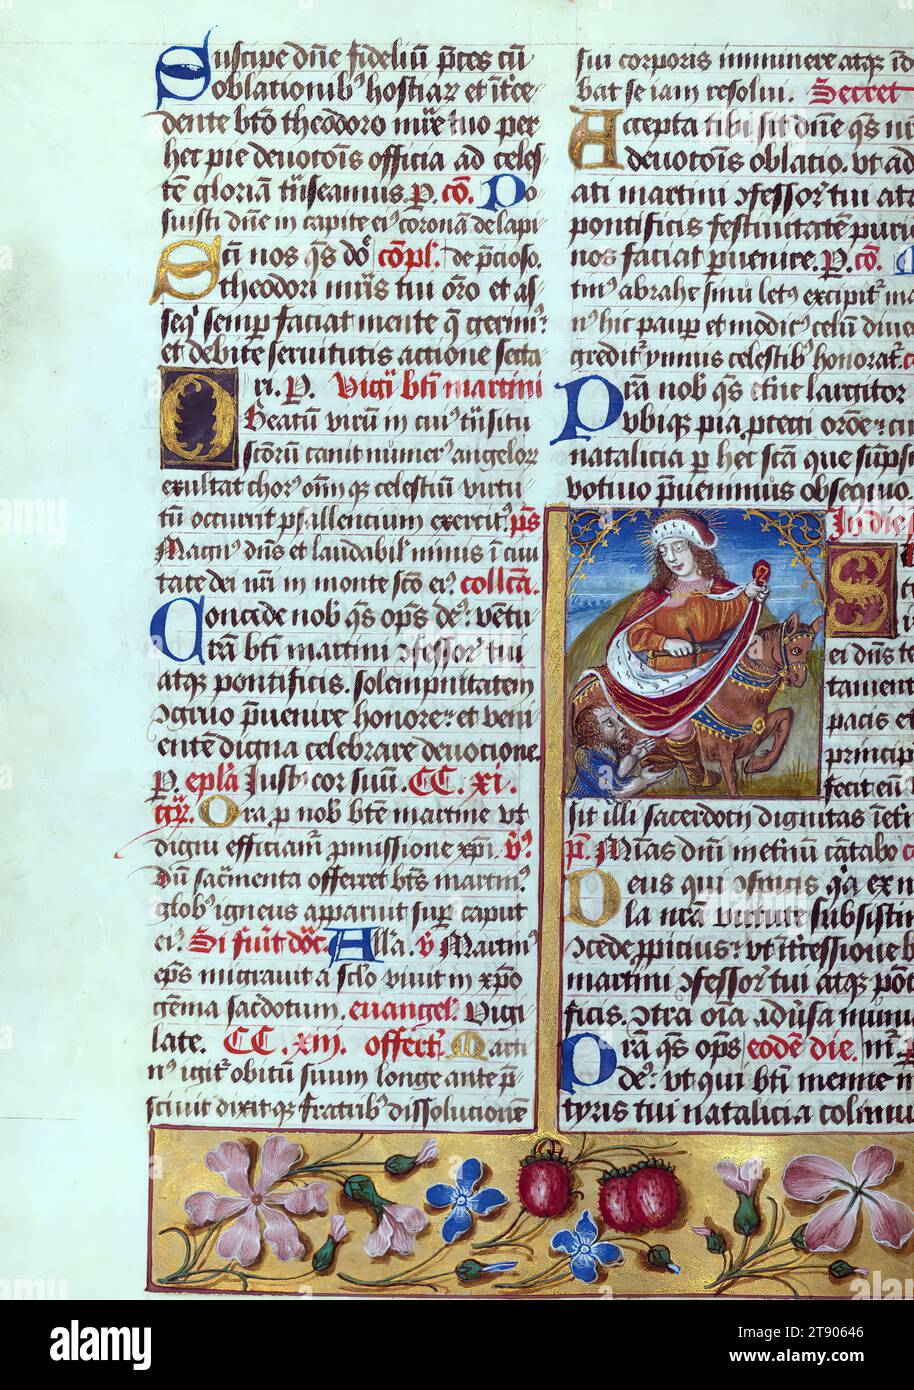 Suscipe dne fideliu p̄ces cū
oblationibꝰ hostiar et ītce
dente bto theodoro mr̄e tuo per
hec pie deuotois officia ad celes
tē gloriā trāseamus P. cō. Po
suisti dn̄e in capite eiꝰ coronā de lapi
Scī nos q̄s do͛ cōpl. de p̄cioso.
theodori mr̄is tui oro et as
seqͬ semp faciat mente q̄ gerimꝰ
et debite seruitutis actione secta
ri. P. Vigīl bt̄i martini
O Beatū virū in cuiꝰ trāsitu
sctorū canit numerꝰ angelorꝝ
exultat chorꝰ om̄iq̄ celestiū virtu
tū occurrit psallenciū exercitꝰ. p̄s
Magnꝰ dn̄s et laudabiꝉ nimis ī ciui
tate dei nr̄i in monte sc̄o eiꝰ. collc̄a.
Concede nobꝰ q̄s op̄s deꝰ: ventu
rā bt̄i martini ꝯfessorꝰ tui
atqꝫ pontificis. solempnitatem
ꝯgruo p̄uenire honore: et veni
ente digna celebrare deuotione.
P. ep̄la Justꝰ cor suū. CC. xi.
gr̄. Ora p nobꝰ bt̄e martine vt
digni efficiamͬ pmissione xp̄i. v̄ꝰ
Dū sacͬmenta offerret bt̄s martinꝰ.
globꝰ igneus apparuit sup caput
eiꝰ. Si fuit dōc. All'a. v̄ Martinꝰ
ep̄s migrauit a sclo viuit in xp̄o
gēma sacͬdotum. euangeꝉ. Vigi
late. CC. xiii. offert. Marti
nꝰ igitͬ obitū suum longe ante p̄
sciuit dixitqꝫ fratribꝰ dissolutionē
sui corporis imminere atqꝫ ido
bat se iam resolui. Secret
Accepta tibi sit dn̄e q̄s
deuotois oblatio. vt ad
ati martini ꝯfessorꝰ tui atqꝫ
pontificis festiuitatē
nos faciat puenire. P. cō.
tinꝰ abrahe sinu letꝰ excipitͬ ma
nꝰ hic paup et modicꝰ celum diues
greditͬ ymnus celestibꝰ honoratͬ
Pr̄a nobꝰ q̄s eterne largitor
vbiqꝫ pia ptecti
natalicia p hec sc̄am que
votiuo p̄uenimus obsequio.
In die
S
ei dn̄s te
tament
pacis et
princip
fecit eū
sit illi sacerdotij dignitas
p̄. Mīas dn̄i in eternū cātabo
Deus qui ꝯspicis qͣ ex
la nrā virtute subsistim
ꝯcede ppicius: vt ītcessione
martini ꝯfessorꝰ tui atqꝫ pōti
ficis. ꝯtra om̄ia aduersa
Pr̄a q̄s op̄s eodē die. mr̄.
deꝰ. vt qui bt̄i menne
tyris tui natalicia colimus
alamy
a
alamy
Image ID: 2T90646
www.alamy.com